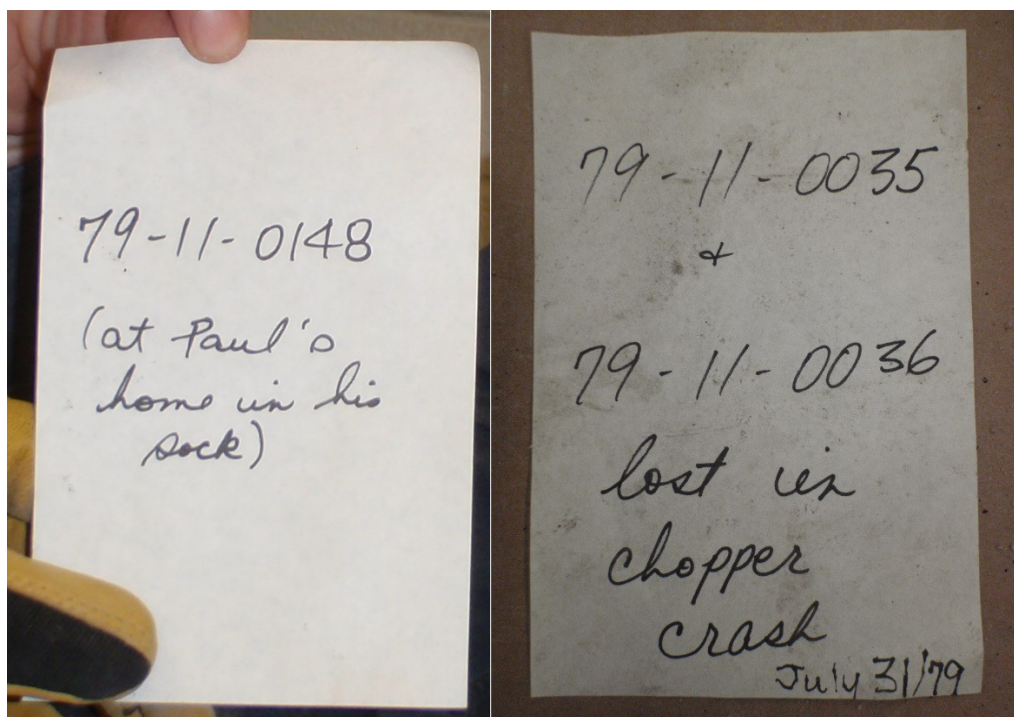 79-11-0148
(at Paul's
home in his
sock)
79-11-0035
&
79-11-0036
lost in
chopper
crash
July 31/79